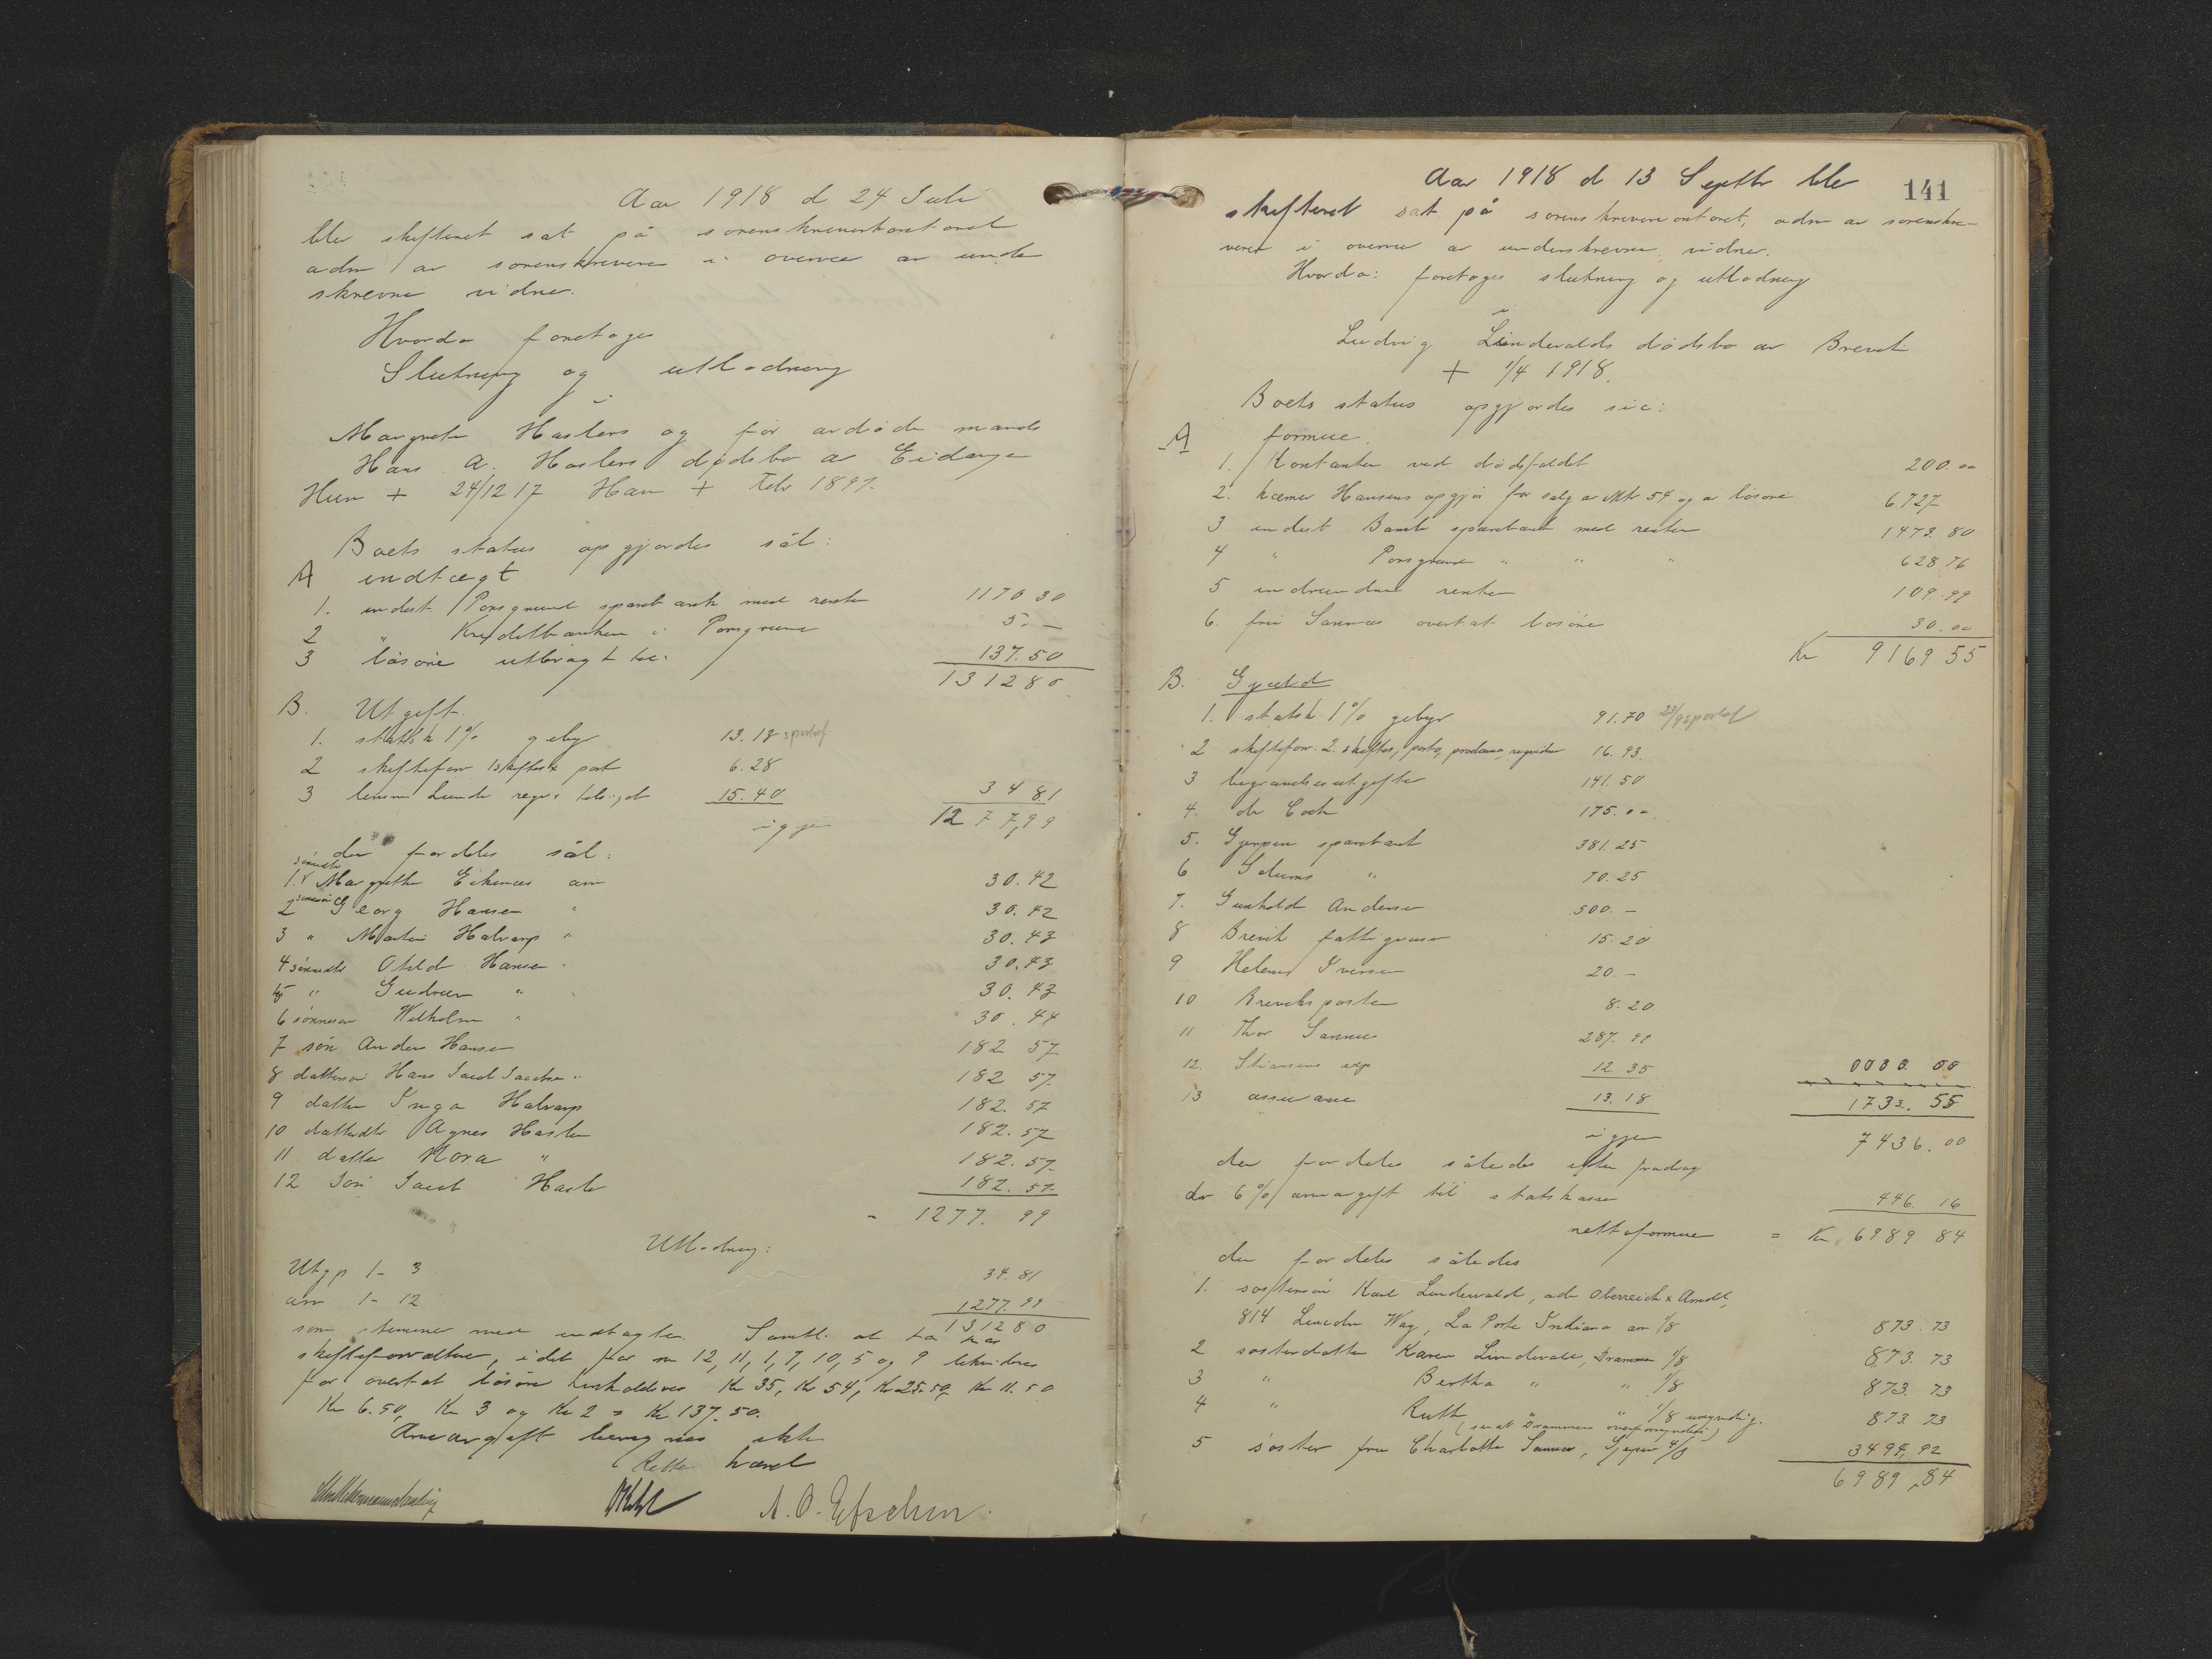 Aar 1918 d 24 Juli
blev skifteret sat på sorenskriverkontoret
adm av sorenskriveren i overvær av under
skrevne vidner.
Hvorda foretoges
Slutning og utlodning
i
Margrete Haslers og før avdøde mands
Hans A. Haslers dødsbo av Eidanger
Hun + 24/12 17 Han + Febr 1897.
Boets status opgjordes sål:
A indtægt
1. indest Porsgrund sparebank med renter 1170 30
2 " Kreditbanken i Porsgrund 5. –
3 løsøre utbragt til 137.50
1312 80
B. Utgift.
1. statsk 1% gebyr 13.18
2 skifteforv. skifter & port 6.28
3 lensm Lunds regn 15.40 34 81
igjen 1277,99
der fordeles sål:
1. sønnedtr Margrethe Eikenæs arv 30.42
2 sønnesøn Georg Hansen " 30.42
3 " Martin Halvarp " 30.43
4 sønnedtr Otild Hansen " 30.43
5 " Gudrun " 30.43
6 sønnesøn Wilhelm " 30.44
7 søn Anders Hansen 182 57
8 dattersøn Hans Jacob Jacobsen " 182 57
9 datter Inga Halvarp 182.57
10 datterdtr Agnes Hasler 182.57
11 datter Nora " 182.57
12 Søn Jacob Hasle 182.57
1277. 99
Utlodning:
Utgp 1-3 34.81
arv 1-12 1277.99
1312 80
som stemmer med indtægten. Samtl. at ta hos
skifteforvalteren, idet for nr 12, 11, 1, 7, 10, 5 og 9 likvideres
for overtat løsøre henholdsvis Kr 35, Kr 54, Kr 25.50, Kr 11.50
Kr 6.50, Kr 3 og Kr 2 = Kr 137.50.
Arveavgift beregnes ikke
Retten hævet
141
Aar 1918 d 13 Septbr blev
skifteret sat på sorenskriverkontoret, adm av sorenskri-
veren i overvær av underskrevne vidner.
Hvorda: foretoges slutning og utlodning
i
Ludvig Lindevalds dødsbo av Brevik
+ 1/4 1918.
Boets status opgjordes sic:
A formue.
1. Kontanter ved dødsfaldet 200.00
2. kæmner Hansens opgjør for salg av Mtr 54 og av løsøre 6727.–
3 indest Bamle sparebank med renter 1473.80
4 " Porsgrund " " " 628 76
5 inddrevne renter 109.99
6. fru Sannæs overtat løsøre 30.00
Kr 9169 55
B. Gjæld
1. statsk 1% gebyr 91.70
2 skifteforv. 2 skifter, porto, proclama, 16.93.
3 begravelsesutgifter 141.50
4. dr Coch 175.00
5. Gjerpen sparebank 381.25
6 Solums " 70.25
7. Gunhild Andersen 500.–
8 Brevik fattigvæsen 15.20
9 Helene Iversen 20.–
10 Breviksposten 8.20
11 Thor Sannæs 287.99
12. Stiansens exp 12.35 0000.00
13 assurance 13.18 1733.55
igjen 7436.00
der fordeles således efter fradrag
av 6% arveavgift til statskassen 446.16
nettoformue = Kr. 6989 84
der fordeles således
1. søstersøn Karl Lindewald, adr Oberreich & Arndt,
814 Lincoln Way, La Porte Indiana arv 1/8 873.73
2 søsterdatter Karen Lindevald, Drammen 1/8 873.73
3 " Bertha " " 1/8 873.73
4 " Ruth " " 1/8 umyndig. 873 73
(sendt Drammens overformynderi)
5 søster fru Charlotte Sannæs, Gjerpen 4/8 3494,92
6989,84